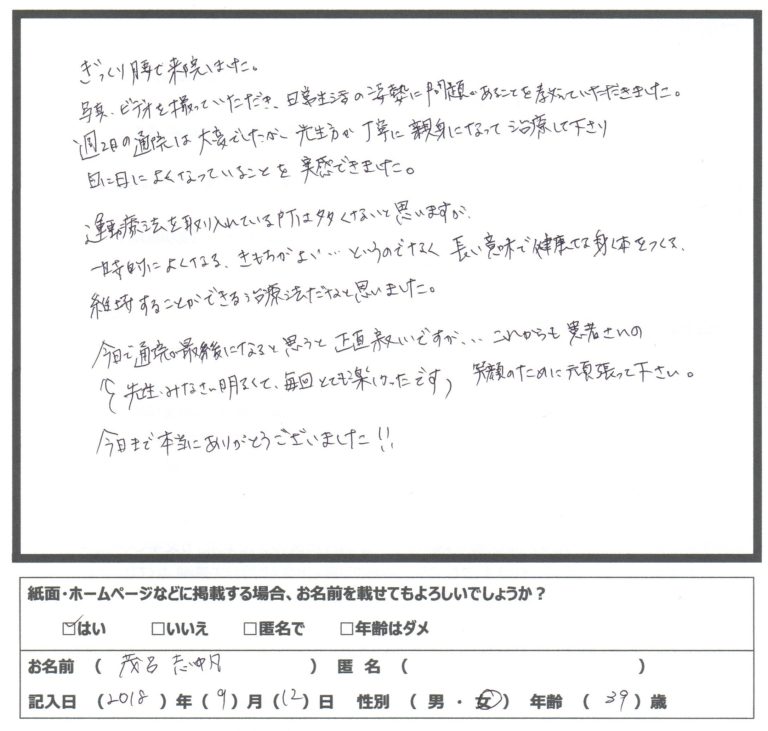 ぎっくり腰で来院しました。
写真、ビデオを撮っていただき、日常生活の姿勢に問題があることを教えていただきました。
週2日の通院は大変でしたが、先生方が丁寧に親身になって治療して下さり
日に日によくなっていることを実感できました。
運動療法を取り入れているPTは多くないと思いますが、
一時的によくなる、きもちがよい…というのでなく 長い意味で健康な身体をつくる、
維持することができる治療法だなと思いました。
今日で通院が最後になると思うと正直寂しいですが… これからも患者さんの
(先生、みなさん明るくて、毎回とても楽しかったです) 笑顔のために頑張って下さい。
今日まで本当にありがとうございました!!
紙面・ホームページなどに掲載する場合、お名前を載せてもよろしいでしょうか?
☑はい □いいえ □匿名で □年齢はダメ
お名前 ( 茂呂 志帆 ) 匿名 ( )
記入日 (2018)年(9)月(12)日 性別 (男・女) 年齢 (39)歳